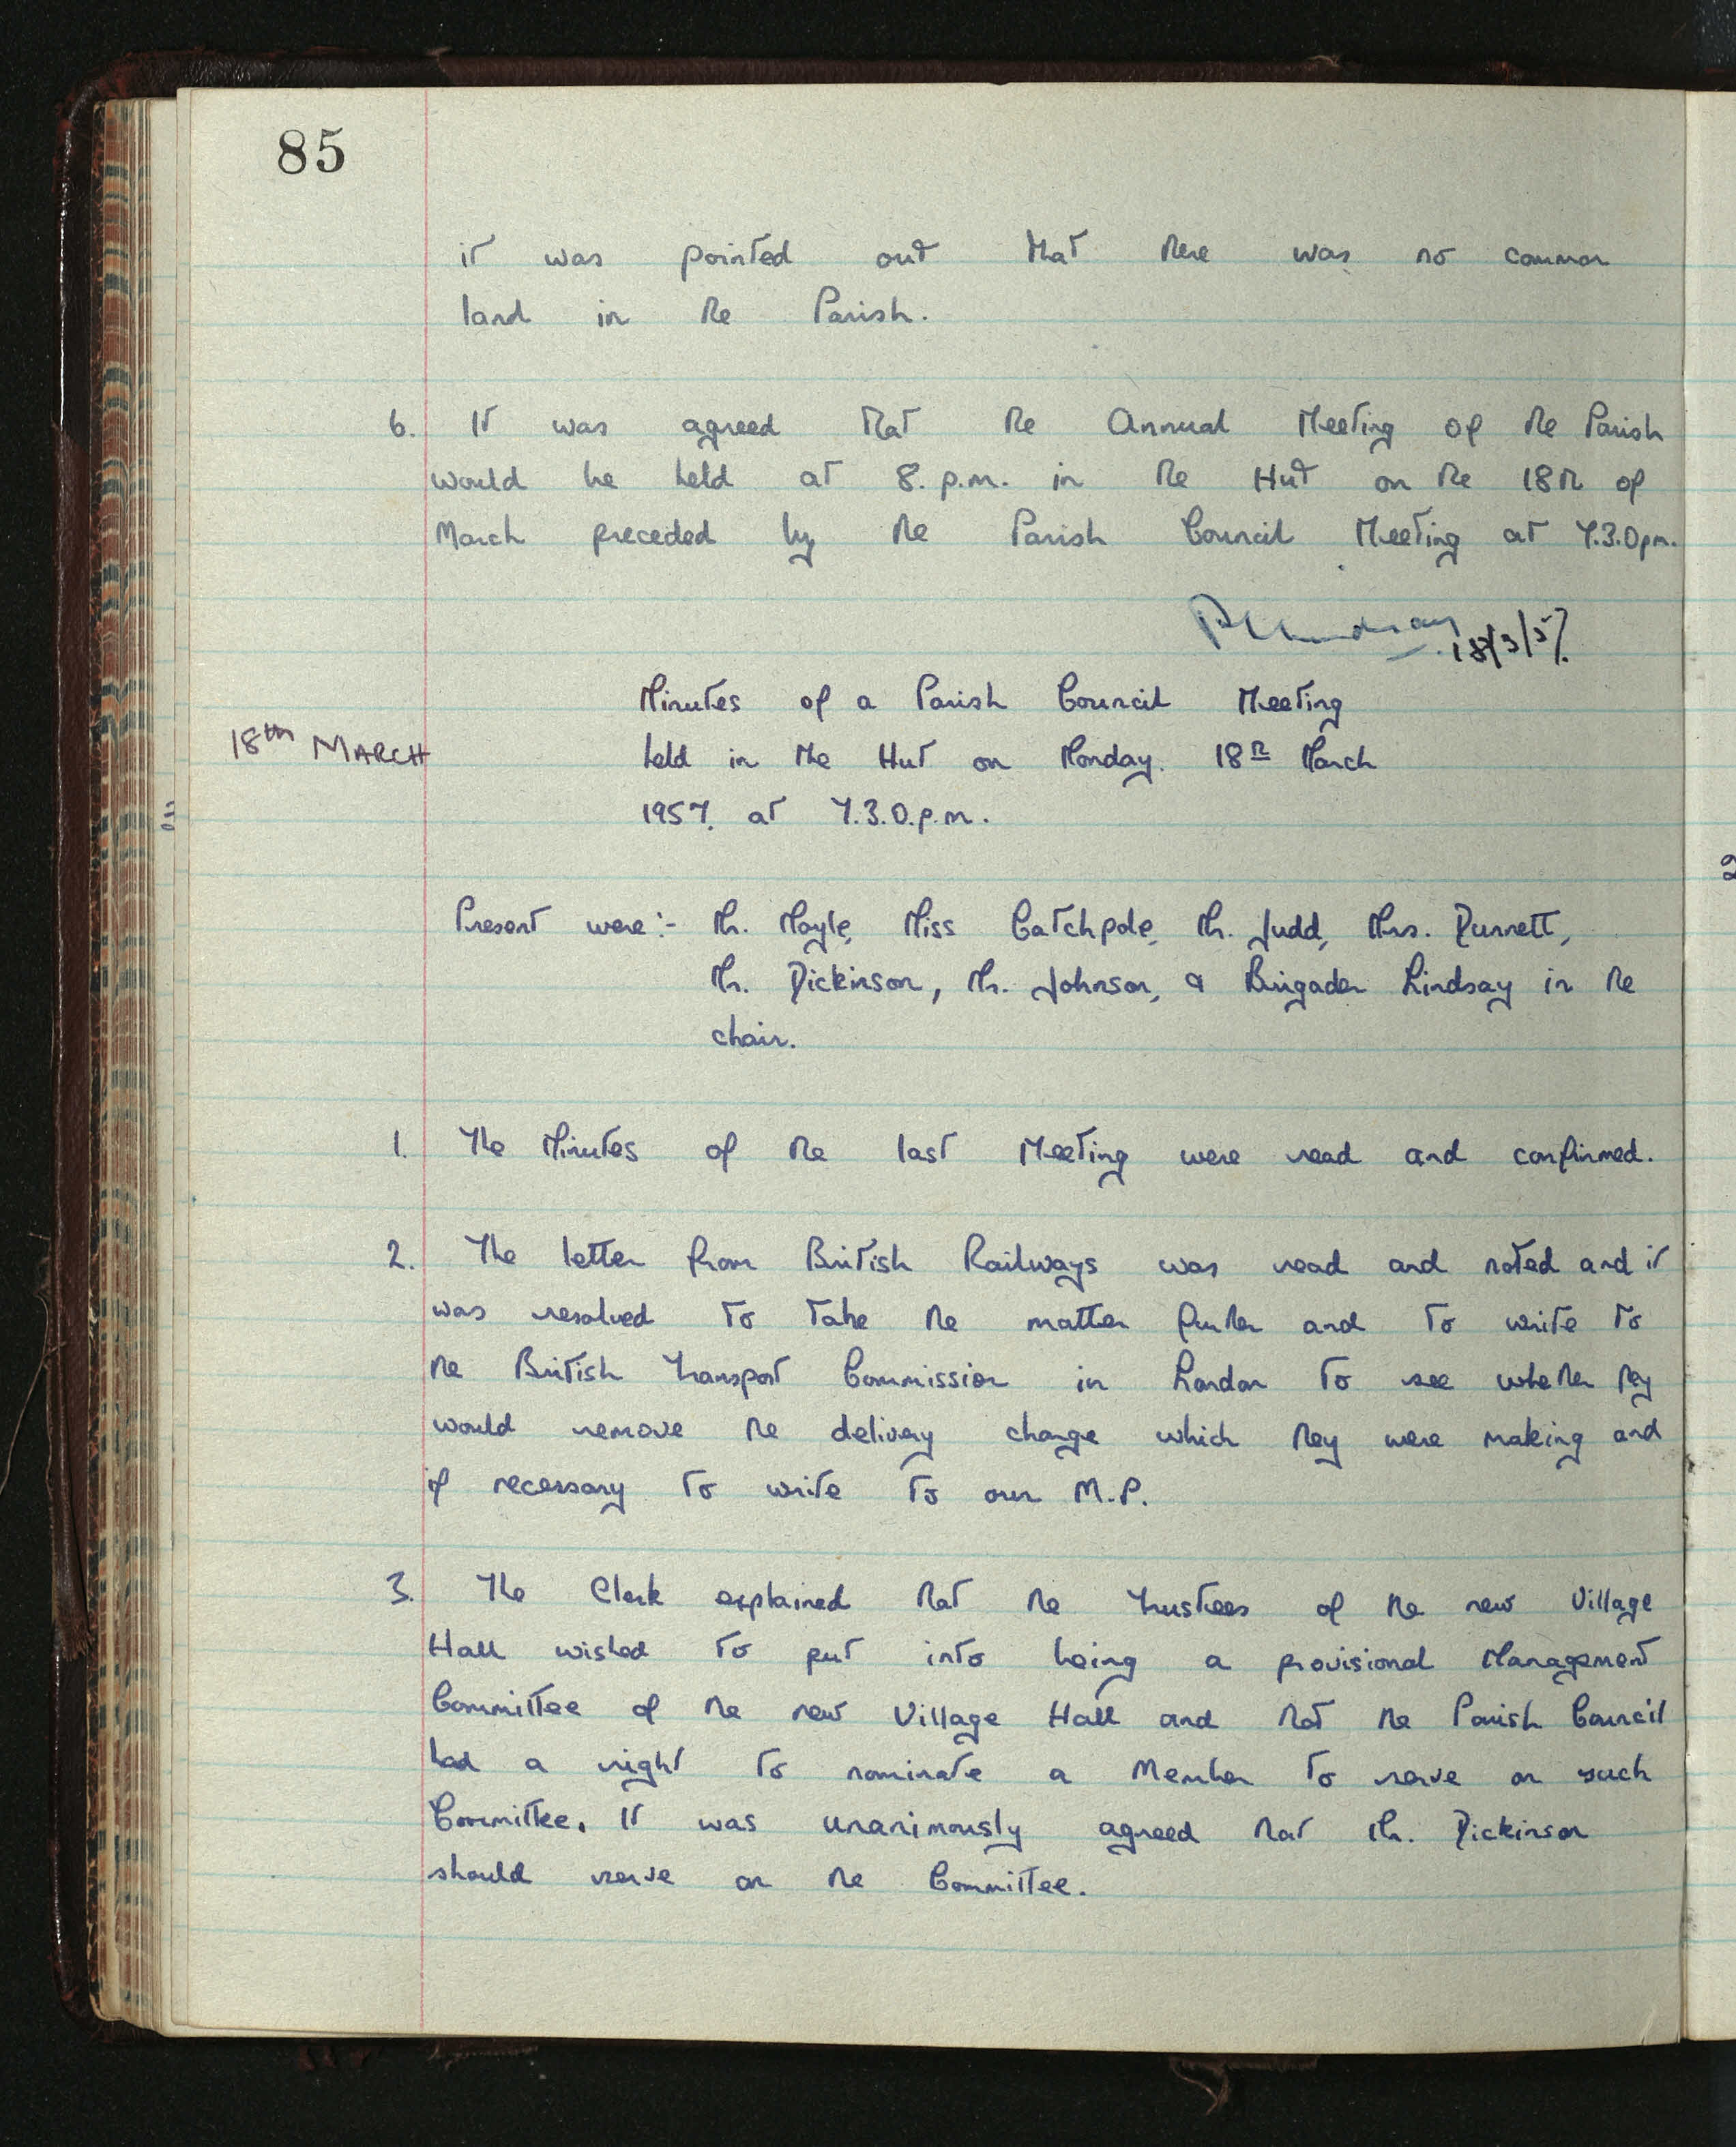 85
it was pointed out that there was no common
land in the Parish.
6. It was agreed that the Annual Meeting of the Parish
would be held at 8.p.m. in the Hut on the 18th of
March preceded by the Parish Council Meeting at 7.3.0pm.
18/3/57.
Minutes of a Parish Council Meeting
18th MARCH
held in the Hut on Monday. 18th March
1957. at 7.3.0.p.m.
Present were:- Mr. Moyle, Miss Catchpole, Mr. Judd, Mrs. Durrett,
Mr. Dickinson, Mr. Johnson, & Brigader Lindsay in the
chair.
1. The Minutes of the last Meeting were read and confirmed.
2. The letter from British Railways was read and noted and it
was resolved to take the matter further and to write to
the British Transport Commission in London to see whether they
would remove the delivery charge which they were making and
if necessary to write to our M.P.
3. The Clerk explained that the Trustees of the new Village
Hall wished to put into being a provisional Management
Committee of the new Village Hall and that the Parish Council
had a right to nominate a Member to serve on such
Committee. It was unanimously agreed that Mr. Dickinson
should serve on the Committee.